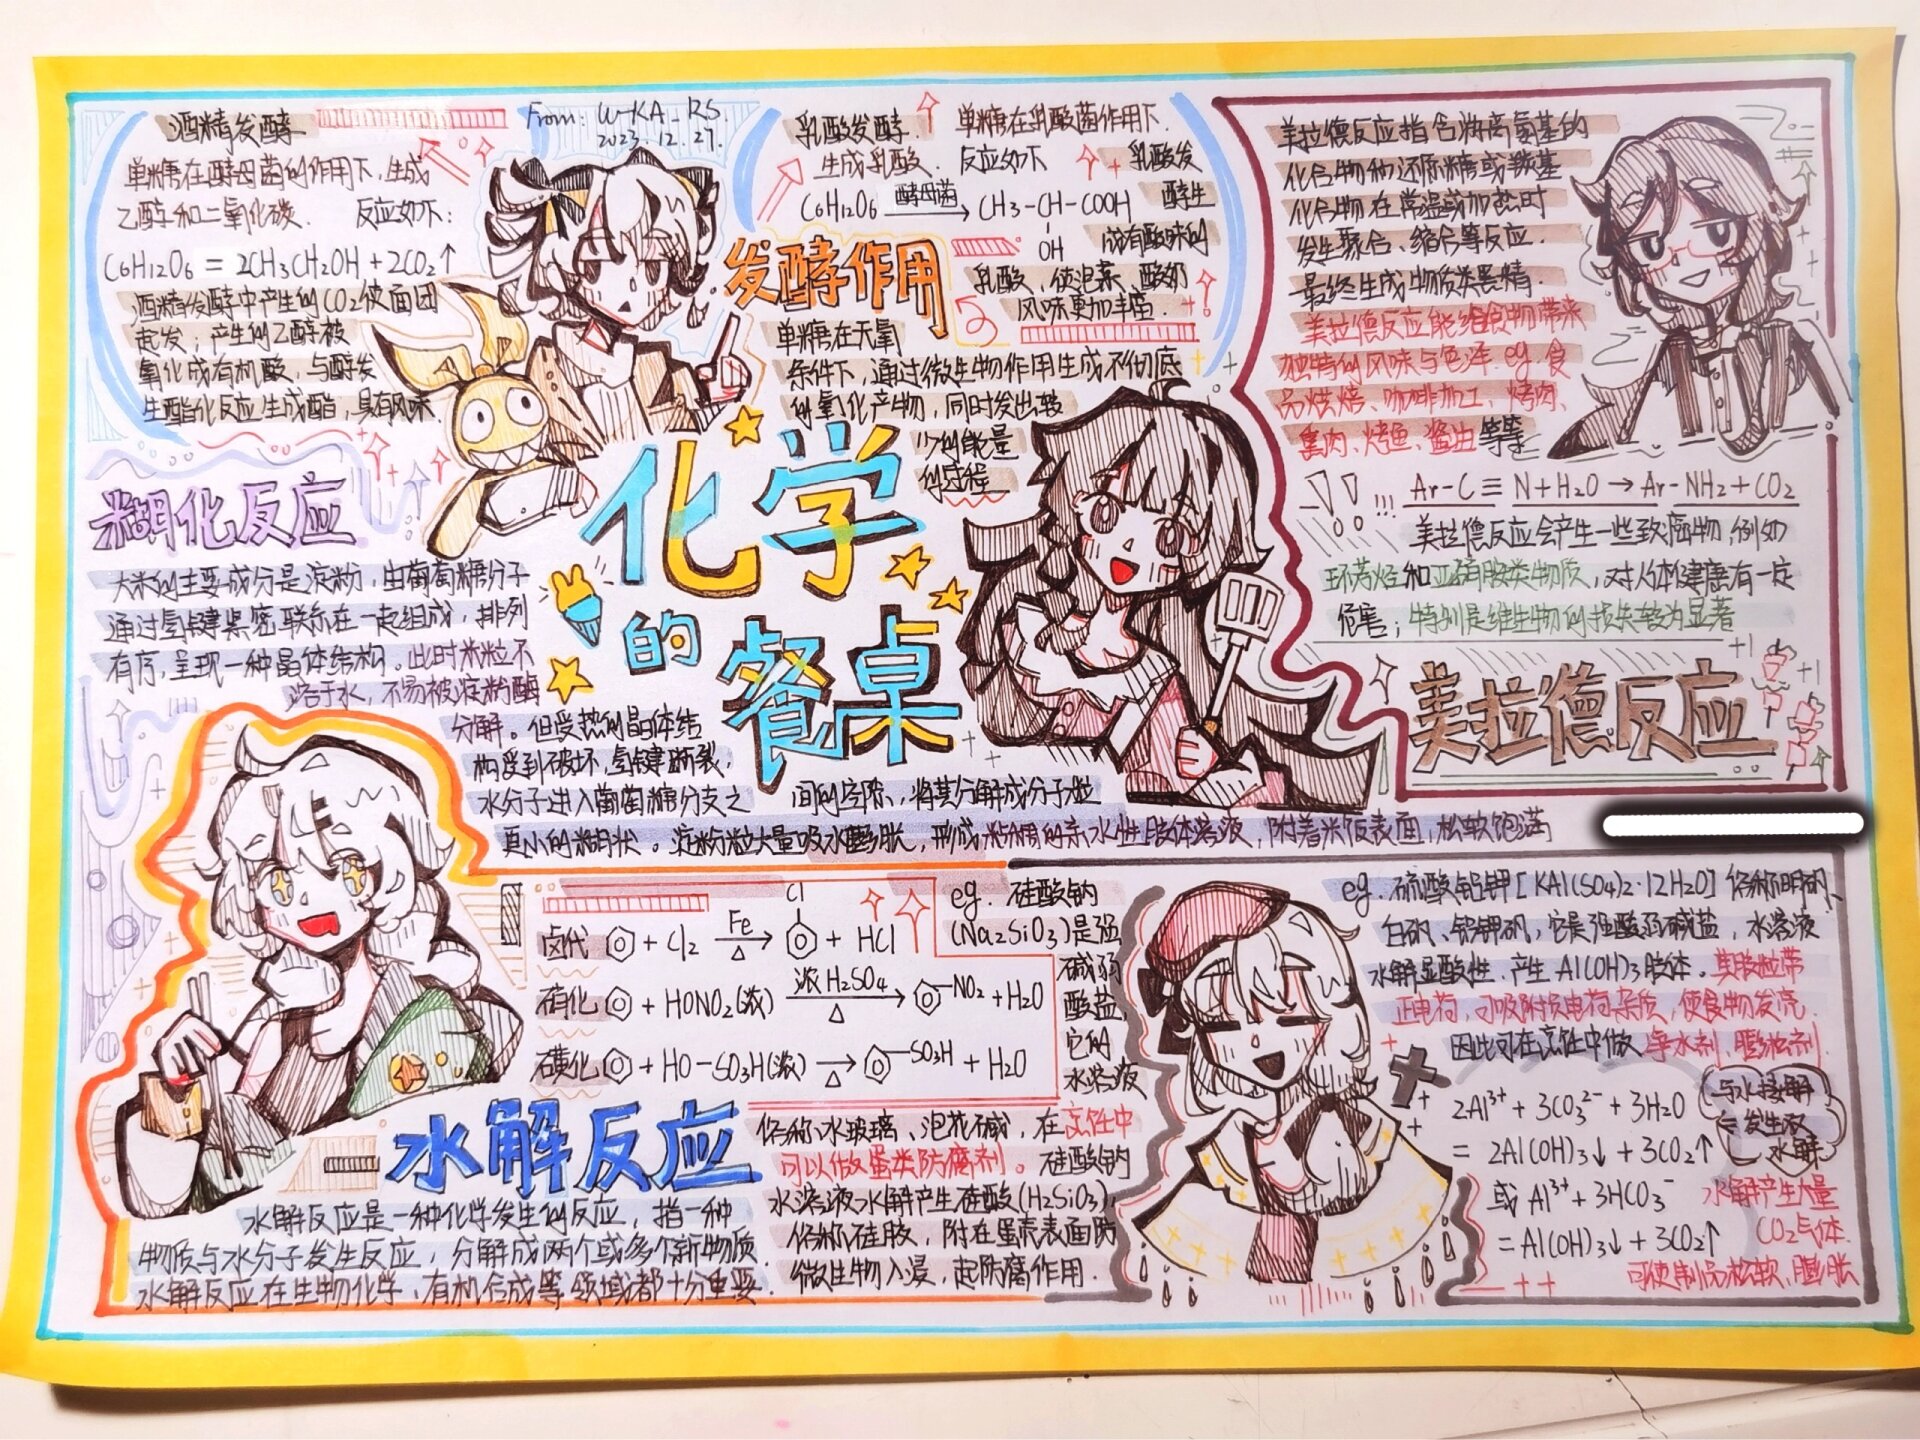 From: W-KA_RS
2023.12.27.
酒精发酵
单糖在酵母菌的作用下,生成
乙醇和二氧化碳. 反应如下:
C6H12O6 = 2CH3CH2OH + 2CO2↑
酒精发酵中产生的CO2使面团
起发;产生的乙醇被
氧化成有机酸,与醇发
生酯化反应生成酯,具有风味
乳酸发酵. 单糖在乳酸菌作用下.
生成乳酸. 反应如下
C6H12O6 酵母菌→ CH3-CH-COOH
OH
乳酸发
酵生
成有酸味的
乳酸,使泡菜、酸奶
风味更加丰富.
发酵作用
单糖在无氧
条件下,通过微生物作用生成不彻底
的氧化产物,同时发出较
少的能量
的过程
化学
的
餐桌
美拉德反应指含游离氨基的
化合物和还原糖或羰基
化合物在常温或加热时
发生聚合、缩合等反应.
最终生成物质类黑精.
美拉德反应能给食物带来
独特的风味与色泽. eg.食
品烘焙、咖啡加工、烤肉、
熏肉、烤鱼、酱油等等
!! !!! Ar-C≡N+H2O→Ar-NH2+CO2
美拉德反应会产生一些致癌物,例如
环芳烃和亚硝胺类物质,对人体健康有一定
危害;特别是维生物的损失较为显著
美拉德反应
糊化反应
大米的主要成分是淀粉,由葡萄糖分子
通过氢键紧密联系在一起组成,排列
有序,呈现一种晶体结构。此时米粒不
溶于水,不易被淀粉酶
分解。但受热的晶体结
构受到破坏,氢键断裂,
水分子进入葡萄糖分支之 间的空隙,将其分解成分子粒
更小的糊状。淀粉粒大量吸水膨胀,形成粘稠的亲水性胶体溶液,附着米饭表面,松软饱满
卤代 + Cl2 Fe △→ Cl + HCl
硝化 + HONO2(浓) 浓H2SO4 △→ -NO2 + H2O
磺化 + HO-SO3H(浓) △→ -SO3H + H2O
水解反应
水解反应是一种化学发生的反应,指一种
物质与水分子发生反应,分解成两个或多个新物质.
水解反应在生物化学、有机合成等领域都十分重要.
eg. 硅酸钠
(Na2SiO3)是强
碱弱
酸盐,
它的
水溶液
俗称水玻璃、泡花碱,在烹饪中
可以做蛋类防腐剂。硅酸钠
水溶液水解产生硅酸(H2SiO3),
俗称硅胶,附在蛋壳表面防
微生物入浸,起防腐作用.
eg. 硫酸铝钾[KAl(SO4)2·12H2O] 俗称明矾、
白矾、铝钾矾,它是强酸弱碱盐,水溶液
水解显酸性.产生Al(OH)3胶体。其胶粒带
正电荷,可吸附损电荷杂质,使食物发亮.
因此可在烹饪中做净水剂、膨松剂.
2Al³⁺ + 3CO3²⁻ + 3H2O
= 2Al(OH)3↓ + 3CO2↑
或 Al³⁺ + 3HCO3⁻
= Al(OH)3↓ + 3CO2↑
发生双
水解
水解产生大量
CO2气体.
可使制品松软、膨胀